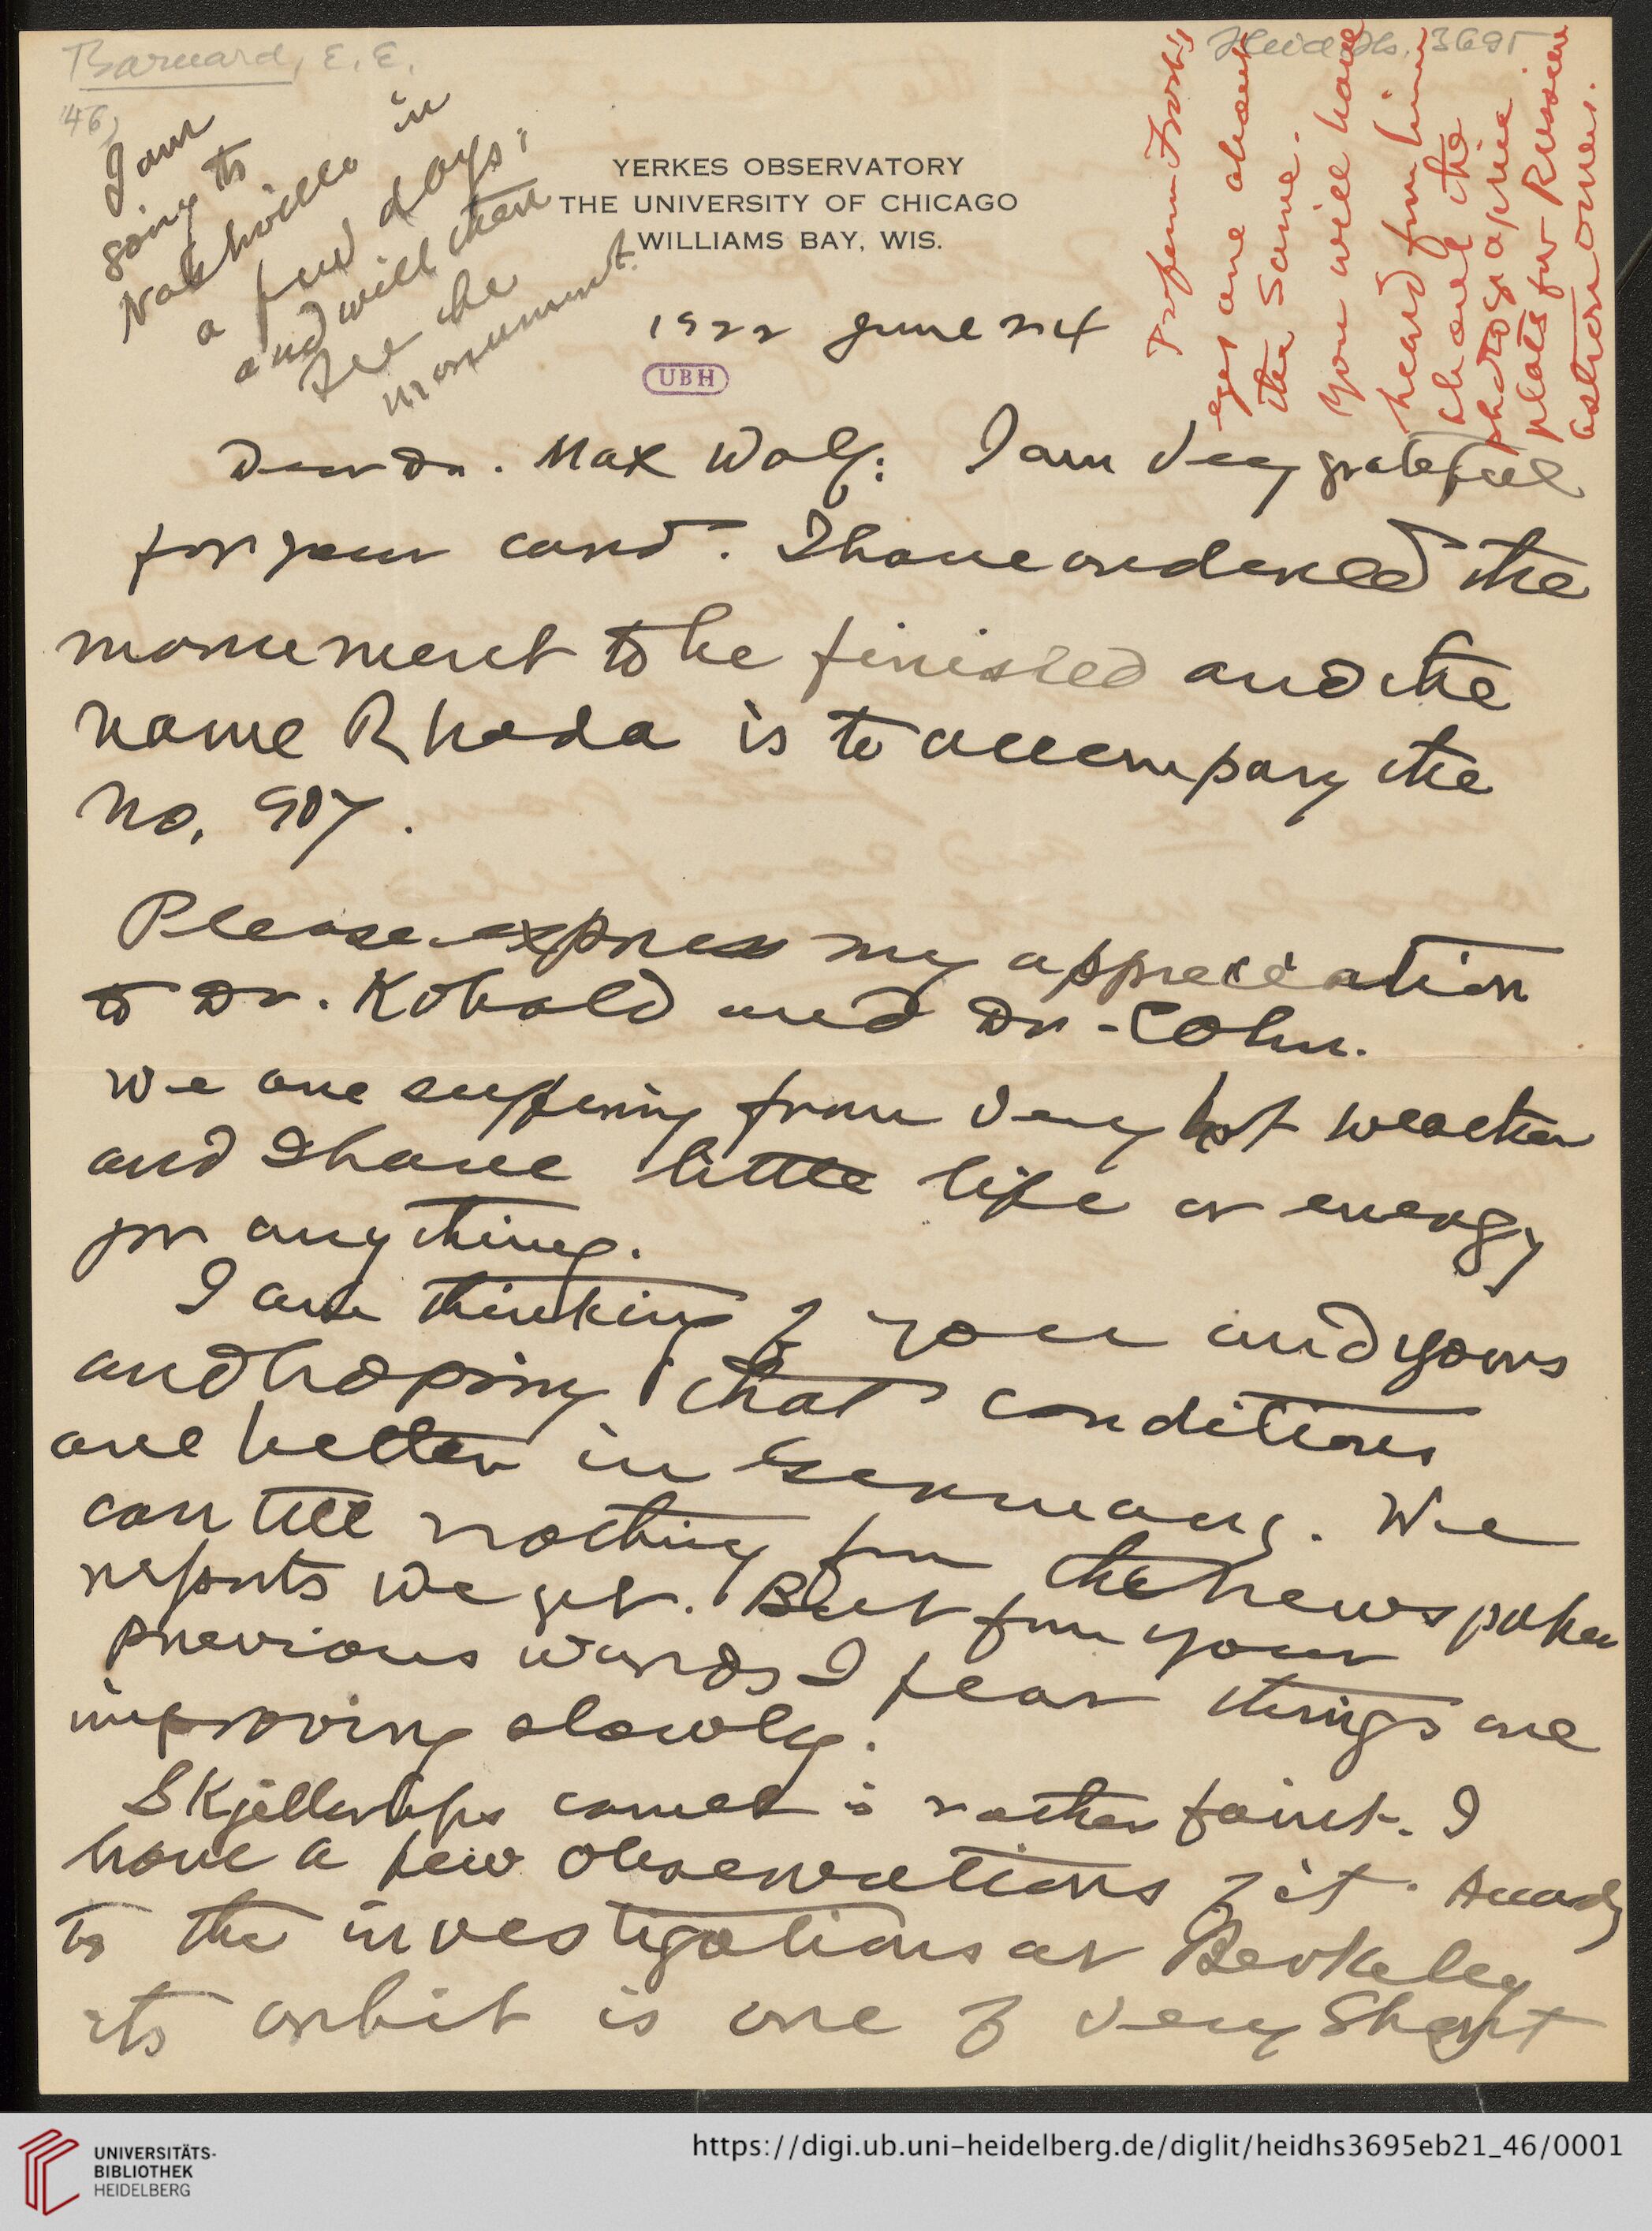 Barnard, E. E.
Heid. Hs. 3695
46,
I am
going to
Nashville in
a few days,
and will then
see the
monument.
YERKES OBSERVATORY
THE UNIVERSITY OF CHICAGO
WILLIAMS BAY, WIS.
Professor Frost's
eyes are about
the same.
You will have
heard from him
about the
photographic
plates for Russian
astronomers.
1922 June
UBH
Dear Dr. Max Wolf: I am very grateful
for your card. I have ordered the
monument to be finished and the
name Rhoda is to accompany the
no. 907.
Please express my appreciation
to Dr. Kobold and Dr. Cohn.
We are suffering from very hot weather
and I have little life or energy
for anything.
I am thinking of you and yours
and hoping that conditions
are better in Germany. We
can tell nothing from the newspaper
reports we get. But from your
previous words I fear things are
improving slowly.
Skjellerups comet is rather faint. I
have a few observations of it.
to the investigations at Berkeley
its orbit is one of very short
UNIVERSITÄTS-
BIBLIOTHEK
HEIDELBERG
https://digi.ub.uni-heidelberg.de/diglit/heidhs3695eb21_46/0001